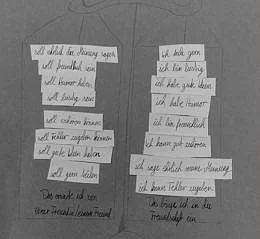 soll ehrlich die Meinung sagen
soll freundlich sein
soll Humor haben
soll lustig sein
soll zuhören können
soll Fehler zugeben können
soll gute Ideen haben
soll gern teilen
Das erwarte ich von
einer Freundin/einem Freund
ich teile gern
ich bin lustig
ich habe gute Ideen
ich habe Humor
ich bin freundlich
ich kann gut zuhören
ich sage ehrlich meine Meinung
ich kann Fehler zugeben
Das bringe ich in die
Freundschaft ein